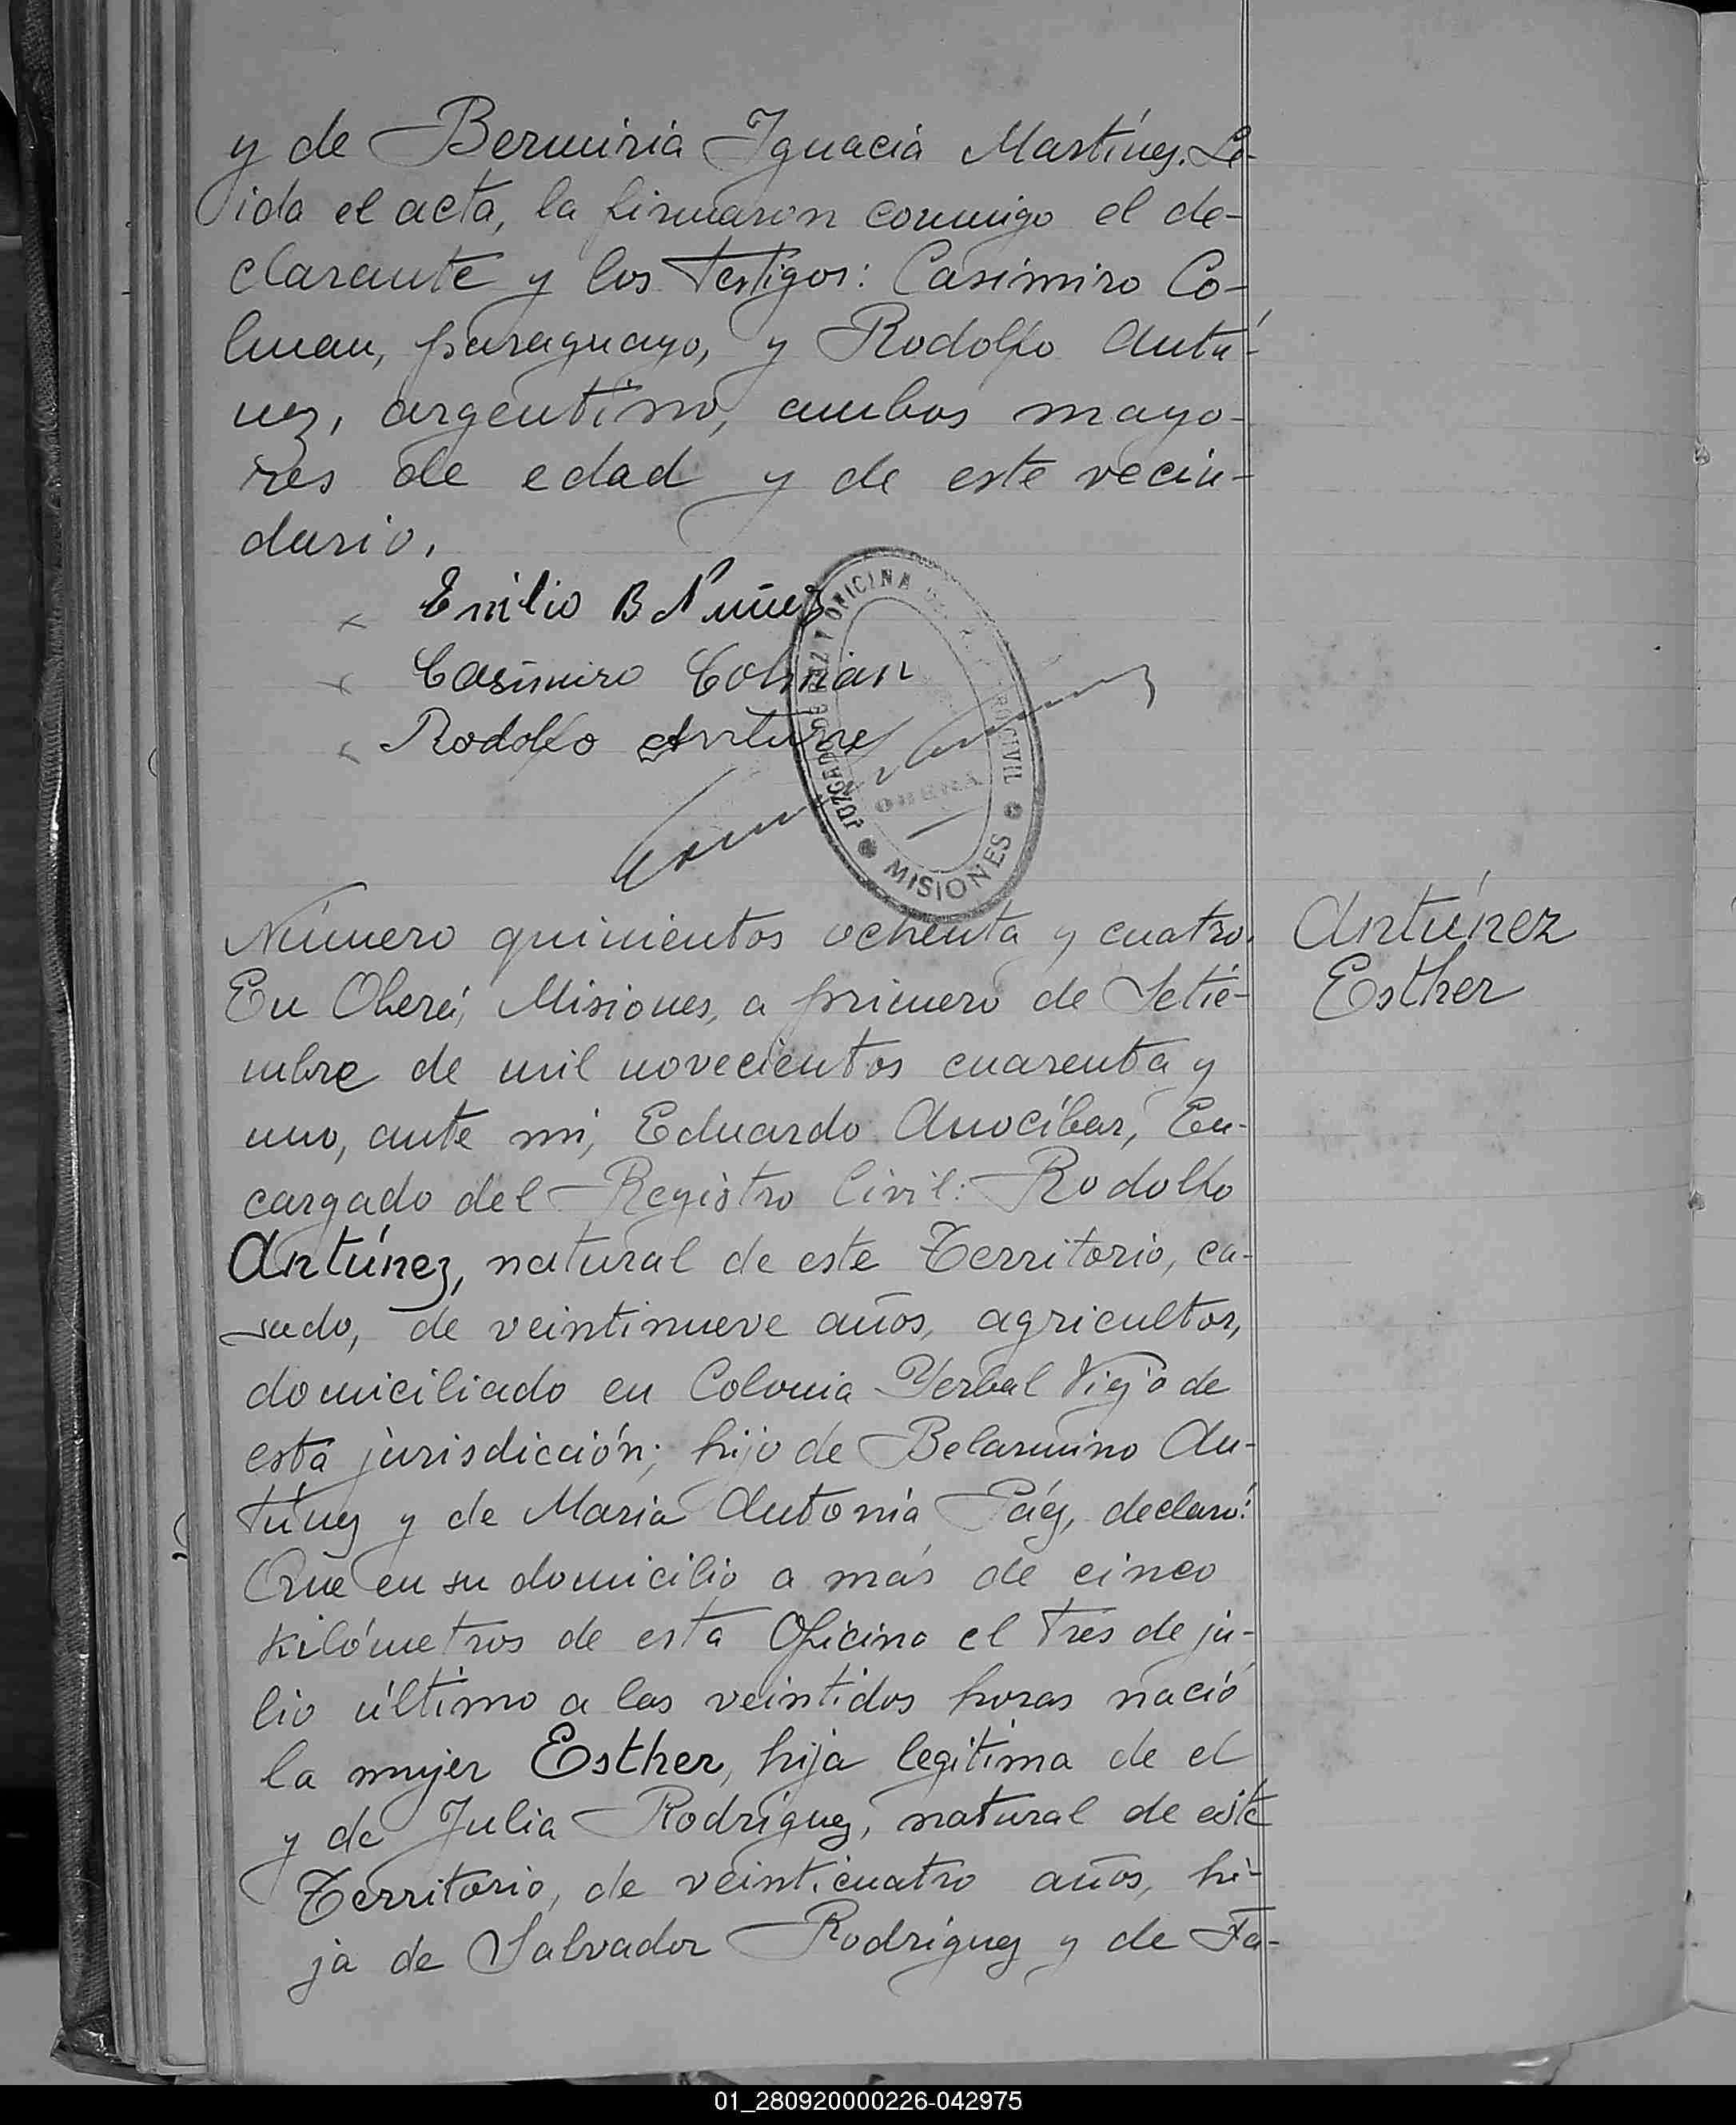 y de Bermiria Ignacia Martínez. Le-
ida el acta, la firmaron conmigo el de-
clarante y los testigos: Casimiro Co-
lman, paraguayo, y Rodolfo Antú-
nez, argentino, ambos mayo-
res de edad y de este vecin-
dario.
Emilio B Nuñez
Casimiro Colman
Rodolfo Antunez
JUZGADO DE PAZ Y OFICINA DEL REGISTRO CIVIL
OBERÁ
MISIONES
Número quinientos ochenta y cuatro.
Antúnez
Esther
En Oberá, Misiones, a primero de Setie-
mbre de mil novecientos cuarenta y
uno, ante mi, Eduardo Anocíbar, En-
cargado del Registro Civil: Rodolfo
Antúnez, natural de este Territorio, ca-
sado, de veintinueve años, agricultor,
domiciliado en Colonia Yerbal Viejo de
esta jurisdicción; hijo de Belarmino An-
túnez y de Maria Antonia Páez, declaró:
Que en su domicilio a más de cinco
kilómetros de esta Oficina el tres de ju-
lio último a las veintidos horas nació
la mujer Esther, hija legítima de el
y de Julia Rodríguez, natural de este
Territorio, de veinticuatro años, hi-
ja de Salvador Rodríguez y de Fa-
01_280920000226-042975